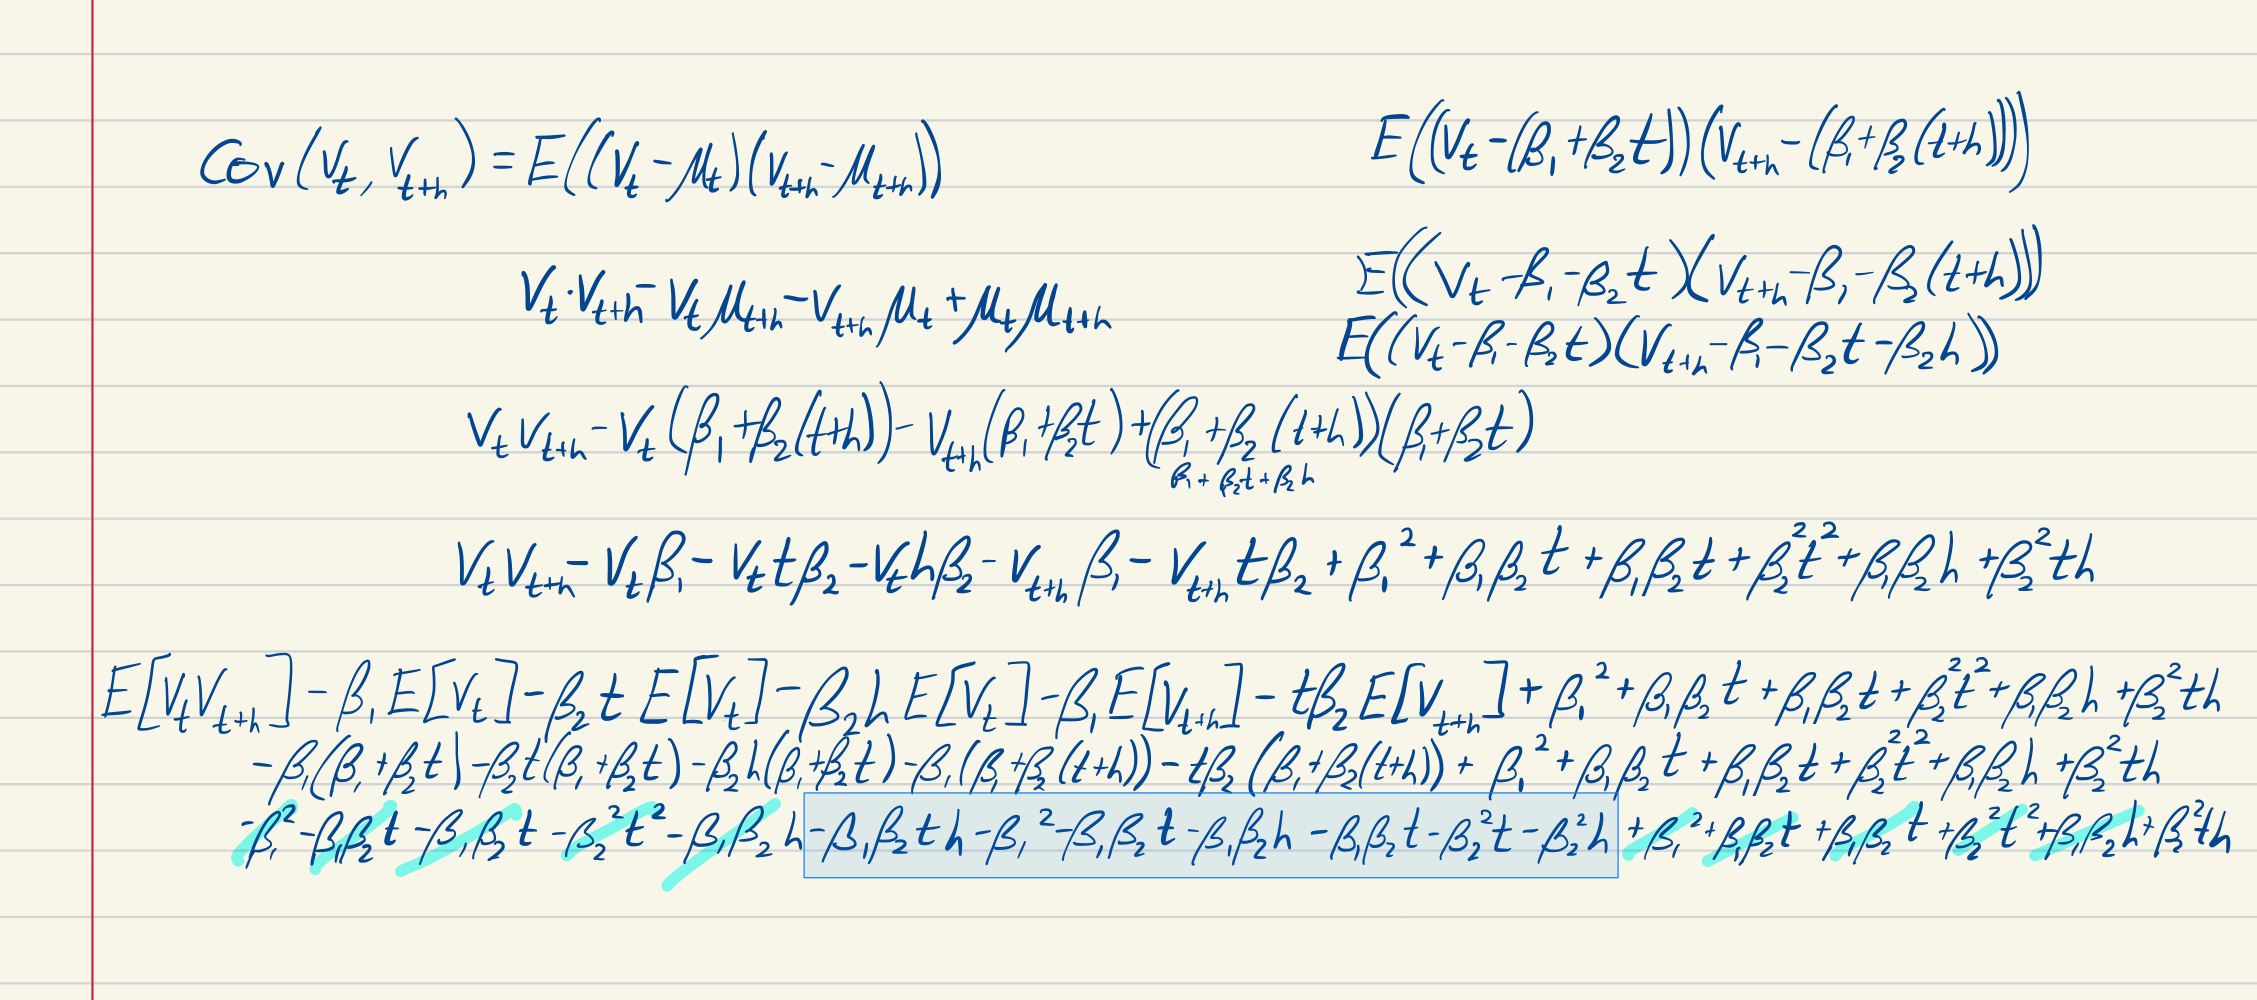 Cov(V_t, V_{t+h}) = E((V_t - μ_t)(V_{t+h} - μ_{t+h}))
E((V_t - (β_1 + β_2 t))(V_{t+h} - (β_1 + β_2(t+h))))
V_t · V_{t+h} - V_t μ_{t+h} - V_{t+h} μ_t + μ_t μ_{t+h}
E((V_t - β_1 - β_2 t)(V_{t+h} - β_1 - β_2(t+h)))
E((V_t - β_1 - β_2 t)(V_{t+h} - β_1 - β_2 t - β_2 h))
V_t V_{t+h} - V_t(β_1 + β_2(t+h)) - V_{t+h}(β_1 + β_2 t) + (β_1 + β_2(t+h))(β_1 + β_2 t)
β_1 + β_2 t + β_2 h
V_t V_{t+h} - V_t β_1 - V_t t β_2 - V_t h β_2 - V_{t+h} β_1 - V_{t+h} t β_2 + β_1² + β_1 β_2 t + β_1 β_2 t + β_2² t² + β_1 β_2 h + β_2² t h
E[V_t V_{t+h}] - β_1 E[V_t] - β_2 t E[V_t] - β_2 h E[V_t] - β_1 E[V_{t+h}] - t β_2 E[V_{t+h}] + β_1² + β_1 β_2 t + β_1 β_2 t + β_2² t² + β_1 β_2 h + β_2² t h
- β_1(β_1 + β_2 t) - β_2 t(β_1 + β_2 t) - β_2 h(β_1 + β_2 t) - β_1(β_1 + β_2(t+h)) - t β_2(β_1 + β_2(t+h)) + β_1² + β_1 β_2 t + β_1 β_2 t + β_2² t² + β_1 β_2 h + β_2² t h
- β_1² - β_1 β_2 t - β_1 β_2 t - β_2² t² - β_1 β_2 h - β_1 β_2 t h - β_1² - β_1 β_2 t - β_1 β_2 h - β_1 β_2 t - β_2² t - β_2² h + β_1² + β_1 β_2 t + β_1 β_2 t + β_2² t² + β_1 β_2 h + β_2² t h